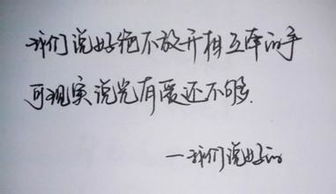 我们说好绝不放开相互牵的手
可现实说光有爱还不够
—我们说好的